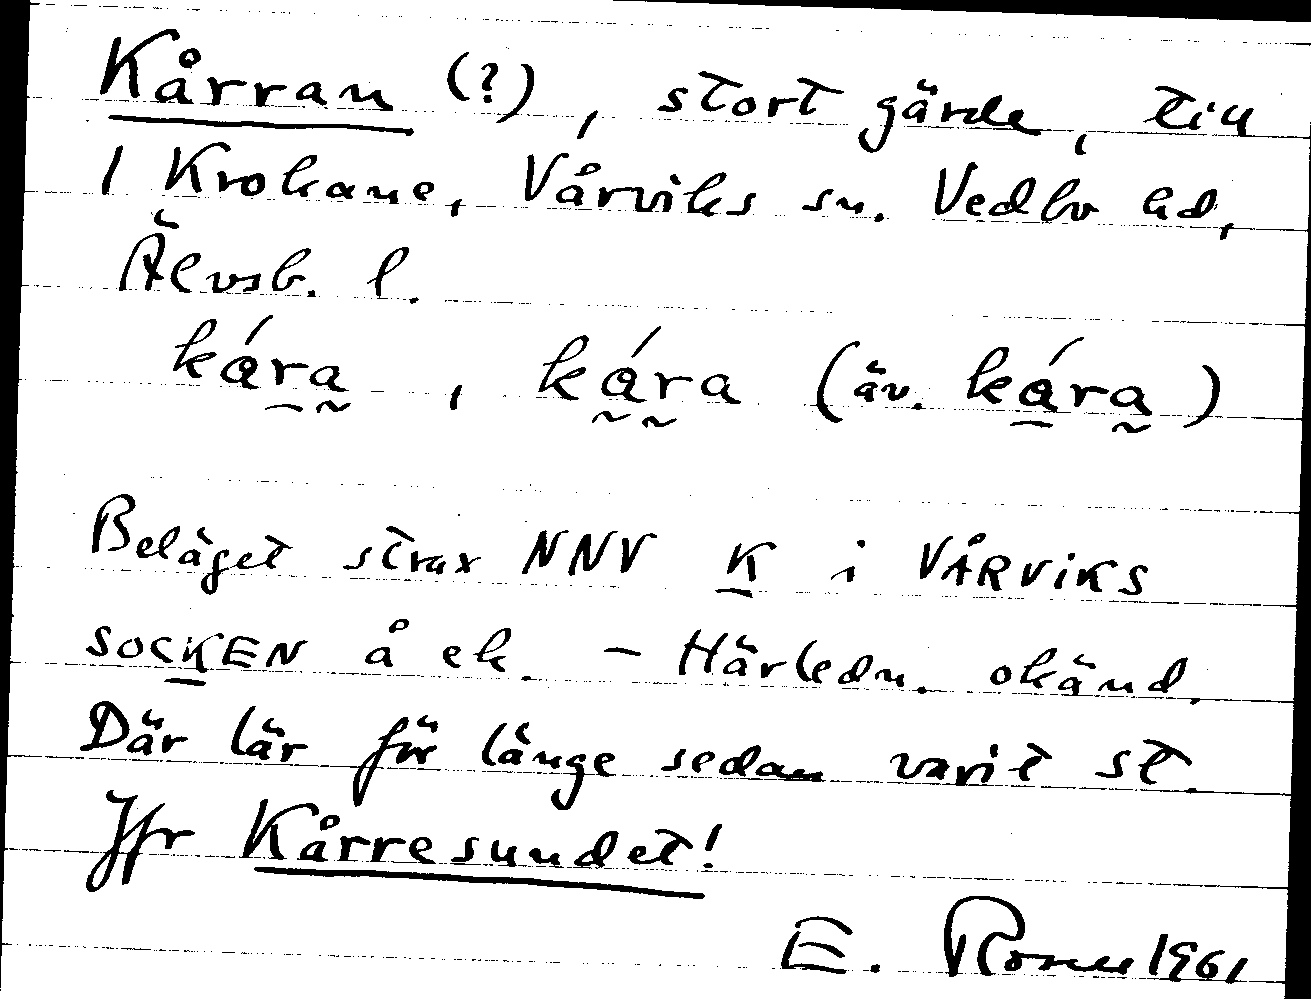 Kårran (?), stort gärde, till
1 Krokane, Vårviks sn. Vedbo hd,
Älvsb. l.
kára, kára (äv. kára)
Beläget strax NNV K i VÅRVIKS
SOCKEN å ek. – Härledn. okänd.
Där lär för länge sedan varit st.
Jfr Kårresundet!
E. 1961